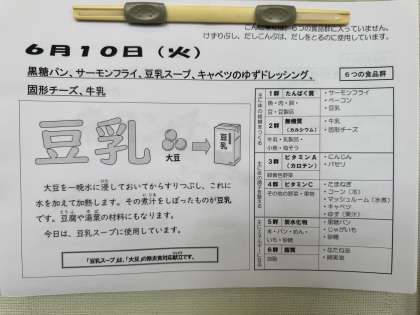 ６つの食品群に入っていません。
けずりぶし、だしこんぶは、だしをとるのに使用しています。
６月１０日（火）
黒糖パン、サーモンフライ、豆乳スープ、キャベツのゆずドレッシング、
固形チーズ、牛乳
６つの食品群
豆乳
大豆
豆乳
大豆を一晩水に浸しておいてからすりつぶし、これに
水を加えて加熱します。その煮汁をしぼったものが豆乳
です。豆腐や湯葉の材料にもなります。
今日は、豆乳スープに使用しています。
「豆乳スープ」は、「大豆」の除去食対応献立です。
１群 たんぱく質
魚・肉・卵・
豆・豆製品
・サーモンフライ
・ベーコン
・豆乳
２群 無機質
（カルシウム）
牛乳・乳製品・
小魚・海そう
・牛乳
・固形チーズ
３群 ビタミンＡ
（カロテン）
緑黄色野菜
・にんじん
・パセリ
４群 ビタミンＣ
その他の野菜・果物
・たまねぎ
・コーン（冷）
・マッシュルーム（水煮）
・キャベツ
・ゆず（果汁）
５群 炭水化物
米・パン・めん・
いも・砂糖
・黒糖パン
・じゃがいも
・砂糖
６群 脂質
油脂
・なたね油
・綿実油